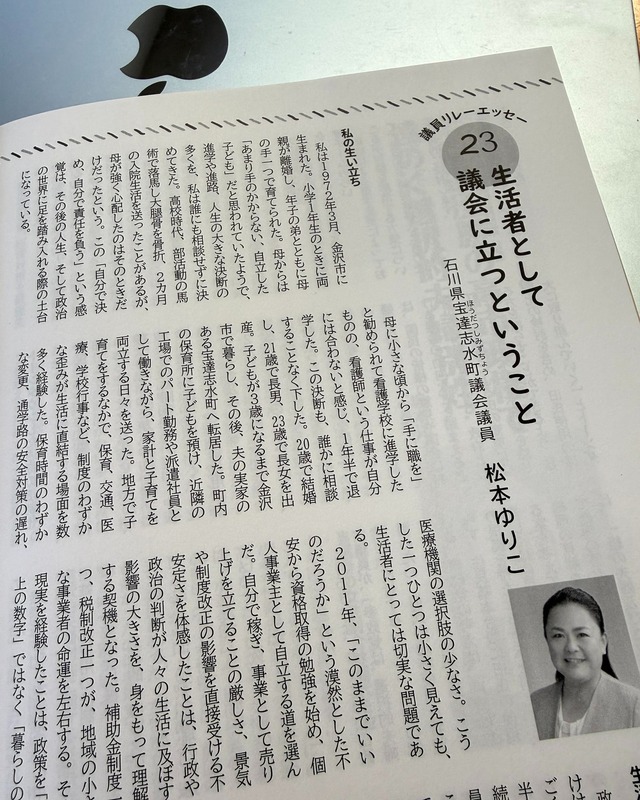 議員リレーエッセー
23
生活者として
議会に立つということ
石川県宝達志水町議会議員 松本ゆりこ
ほうだつしみずちょう
私の生い立ち
私は1972年3月、金沢市に
生まれた。小学1年生のときに両
親が離婚し、年子の弟とともに母
の手一つで育てられた。母からは
「あまり手のかからない、自立した
子ども」だと思われていたようで、
進学や進路、人生の大きな決断の
多くを、私は誰にも相談せずに決
めてきた。高校時代、部活動の馬
術で落馬し大腿骨を骨折、2カ月
の入院生活を送ったことがあるが、
母が強く心配したのはそのときだ
けだったという。この「自分で決
め、自分で責任を負う」という感
覚は、その後の人生、そして政治
の世界に足を踏み入れる際の土台
になっている。
母に小さな頃から「手に職を」
と勧められて看護学校に進学した
ものの、看護師という仕事が自分
には合わないと感じ、1年半で退
学した。この決断も、誰かに相談
することなく下した。20歳で結婚
し、21歳で長男、23歳で長女を出
産。子どもが3歳になるまで金沢
市で暮らし、その後、夫の実家の
ある宝達志水町へ転居した。町内
の保育所に子どもを預け、近隣の
工場でのパート勤務や派遣社員と
して働きながら、家計と子育てを
両立する日々を送った。地方で子
育てをするなかで、保育、交通、医
療、学校行事など、制度のわずか
な歪みが生活に直結する場面を数
多く経験した。保育時間のわずか
な変更、通学路の安全対策の遅れ、
医療機関の選択肢の少なさ。こう
した一つひとつは小さく見えても、
生活者にとっては切実な問題であ
る。
2011年、「このままでいい
のだろうか」という漠然とした不
安から資格取得の勉強を始め、個
人事業主として自立する道を選ん
だ。自分で稼ぎ、事業として売り
上げを立てることの厳しさ、景気
や制度改正の影響を直接受ける不
安定さを体感したことは、行政や
政治の判断が人々の生活に及ぼす
影響の大きさを、身をもって理解
する契機となった。補助金制度一
つ、税制改正一つが、地域の小さ
な事業者の命運を左右する。そ
現実を経験したことは、政策を「
上の数字」ではなく、「暮らしの